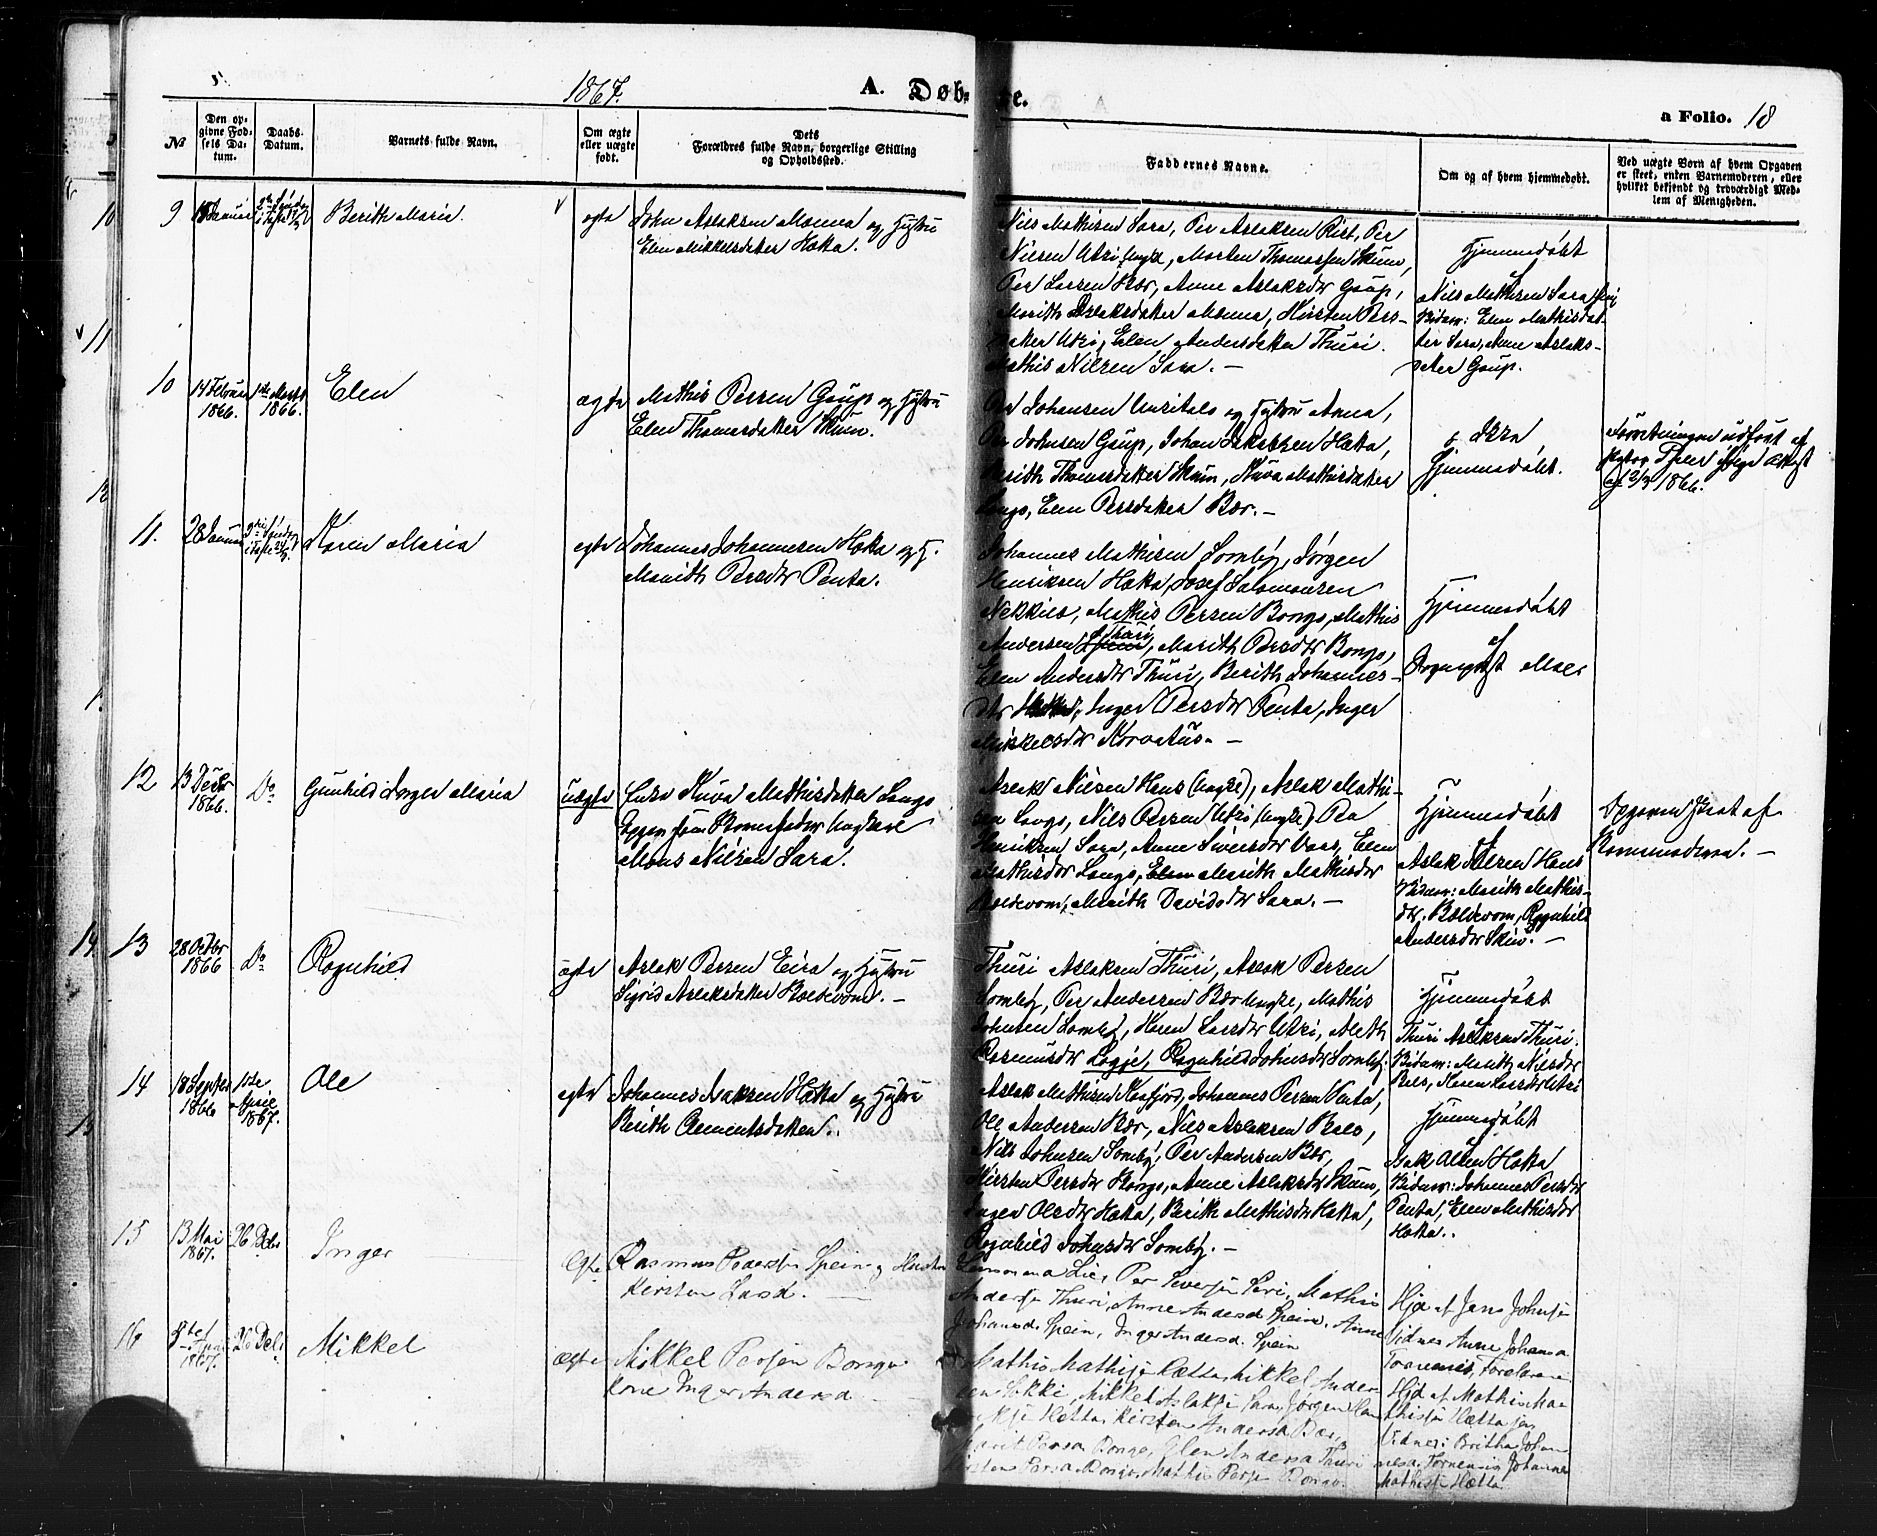 1867.
A. Døb-
te.
a Folio. 18
№
Den op-
givne Fød-
sels Da-
tum.
Daabs-
Datum.
Varnets fulde Navn.
Om ægte
eller uægte
født.
Dets
Forældres fulde Navn, borgerlige Stilling
og Opholdssted.
Faddernes Navne.
Om og af hvem hjemmedøbt.
Ved uægte Børn af hvem Opgaven
er skeet, enten Barnemoderen, eller
hvilket bekjendt og troværdigt Med-
lem af Menigheden.
9
Januar
Berith Maria.
egte
John Aslaksen Monna og Hustru
Elen Mikkelsdatter Hætta.
Nils Mathisen Sara, Per Aslaksen Rist, Per
Nilsen Utsi (yngre), Morten Thomassen Skum,
Per Larsen Bær, Anne Aslaksdr Gaup,
Marith Aslaksdatter Monna, Kirsten Pers-
datter Utsi, Elen Andersdatter Thuri.
Mathis Nilsen Sara. —
Hjemmedøbt
af
Nils Mathisen Sara
Vidner: Elen Mathisdat-
ter Sara, Anne Aslaks-
datter Gaup.
10
14 Februar
1866.
1ste Marts
1866.
Elen
ægte
Mathis Persen Gaup og Hustru
Elen Thomasdatter Skum.
Per Johansen Unsitalo og Hustru Anna,
Per Johnsen Gaup, Johan Isaksen Hætta,
Berith Thomasdatter Skum, Kuva Mathisdatter
Longo, Elen Persdatter Bær. —
Hjemmedøbt.
Forretningen udført af
1866.
11.
28 Januar
Karen Maria
egte
Johannes Johannesen Hætta og H.
Marith Persdr Penta.
Johannes Mathisen Somby, Jørgen
Henriksen Hætta, Josef Salomonsen
Nekkilo, Mathis Persen Bongo, Mathis
Andersen Thuri, Marith Persdr Bongo,
Elen Andersdr Thuri, Berith Johannes-
dtr Hætta, Inger Persdr Penta, Inger
Mikkelsdr Korvatus. —
Hjemmedøbt
af
Sogneprest Moe
12
13 Decbr
1866.
Do
Gunhild Inger Maria
uægte
Enke Kuva Mathisdatter Longo
Opgiven som Barnefader Ungkarl
Mons Nilsen Sara.
Aslak Nilsen Hans (yngre), Aslak Mathi-
sen Longo, Nils Persen Utsi (yngre), Per
Henriksen Sara, Anne Siversdr Vars, Elen
Mathisdr Longo, Elen Marith Mathisdr
Boldevom, Marith Davidsdr Sara. —
Hjemmedøbt
af
Aslak Nilsen Hans
Vidner: Marith Mathis-
dtr. Boldevom, Ragnhild
Andersdr Skum. —
Opgaven skeet af
Barnemoderen. —
13
28 Octbr
1866
Do
Ragnhild
ægte
Aslak Persen Eira og Hustru
Sigrid Aslaksdatter Boldevom. —
Thuri Aslaksen Thuri, Aslak Persen
Somby, Per Andersen Bær yngre, Mathis
Johnsen Somby, Karen Larsdr Utsi, Aleth
Rasmusdr Logje, Ragnhild Johnsdr Somby.
Hjemmedøbt
af
Thuri Aslaksen Thuri.
Vidner: Marith Nilsdr
Bals, Karen Larsdr Utsi
14
18 Septbr
1866
1ste
April
1867.
Ole
egte
Johannes Isaksen Hætta og Hustru
Berith Clementsdatter.
Aslak Mathisen Kaafjord, Johannes Persen Penta,
Ole Andersen Bær, Nils Aslaksen Bals,
Nils Johnsen Somby, Per Andersen Bær,
Kirsten Persdr Bongo, Anne Aslaksdr Skum,
Inger Olsdr Hætta, Berith Mathisdr Hætta,
Ragnhild Johnsdr Somby. —
Hjemmedøbt
af
Isak Olsen Hætta
Vidner: Johannes Persdr
Penta, Elen Mathisdr
Hætta.
15
13 Mai
1867.
26 Debr
Inger
Egte
Rasmus Pedersen Spein og Hustru
Kirsten Larsd. —
Per Siversen Siri, Mathis
Andersen Thuri, Anne Andersd Spein, Anne
Johannsd. Spein, Inger Andersd. Spein
Hjd af Jens Johnsen
Vidner Anne Johansd.
Tornensis, Forældrene
16
April
1867.
26 Debr
Mikkel
Ægte
Mikkel Persen Bongo
Kone Inger Andersd —
Mathis Mathisen Hætta, Mikkel Ander-
sen Sokki, Mikkel Aslaksen Sara, Jørgen Hen-
riksen Hætta, Kirsten Andersd Bær,
Marit Persd Bongo, Elen Andersd Thuri
Kirsten Persd Bongo, Mathis Persen Bongo.
Hjd af Mathis Ma-
thisen Hætta sen
Vidner: Britha Johan-
nesd. Tornensis, Johannes
Mathisen Hætta